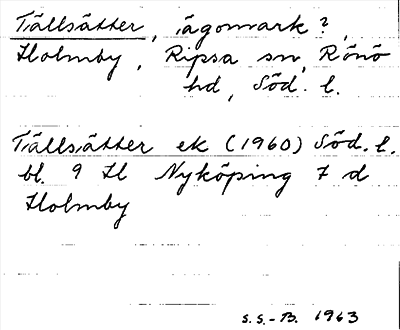 Tällsätter, ägomark?,
Holmby, Ripsa sn, Rönö
hd, Söd. l.
Tällsätter ek (1960) Söd. l.
bl. 9 H Nyköping 7 d
Holmby
S.S.-B. 1963